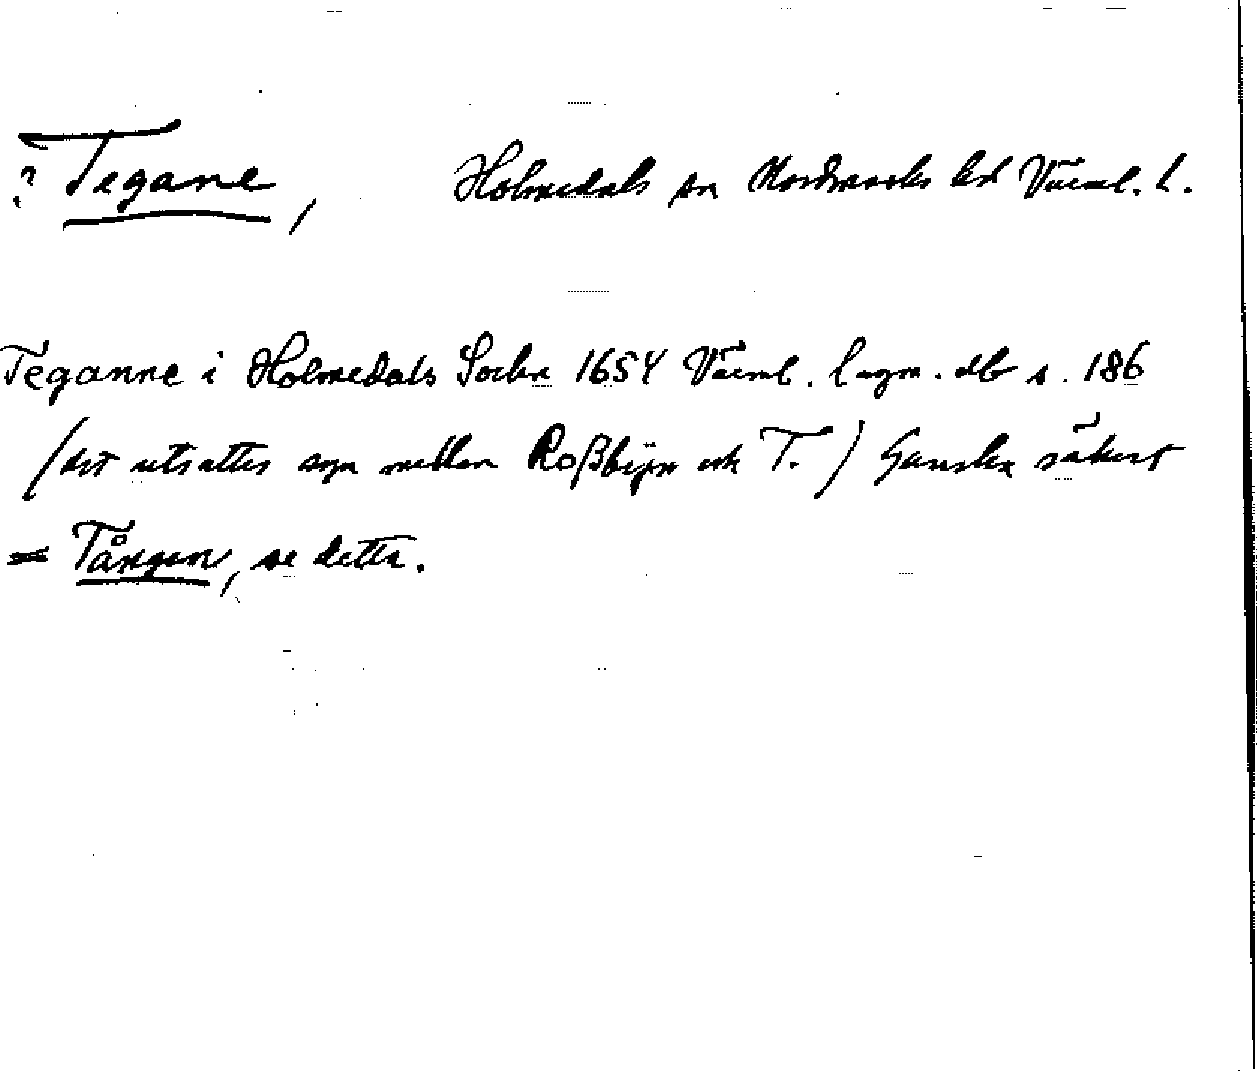 ? Tegane, Holmedals sn Nordmarks hd Värml. l.
Teganne i Holmedals Sockn 1654 Värml. lagm. db s. 186
(det utsattes syn mellan Roßbÿn och T.) Ganska säkert
= Tången, se detta.